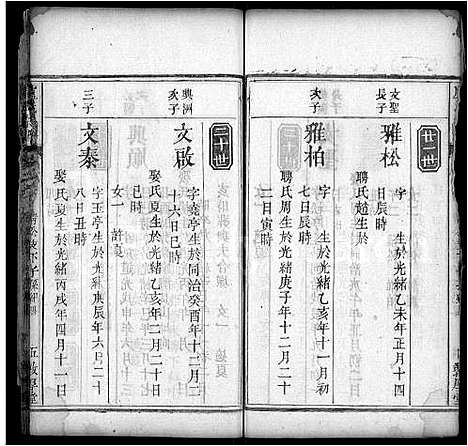 廿一世
文聖
長子
雅松
字 生於光緒乙未年正月十四
日辰時
聘氏趙生於
次子
雅柏
字 生於光緒乙亥年十一月初
七日辰時
聘氏周生於光緒庚子年十二月二十
二日寅時
二十世
興洲
次子
文啟
字 亭生於同治癸酉年十二月二
十六日巳時
娶氏夏生於光緒乙亥年二月二十日
時
女一 許夏
三子
文泰
字玉亭生於光緒庚辰年六月二十
八日丑時
娶氏夏生於光緒丙戌年四月十一日